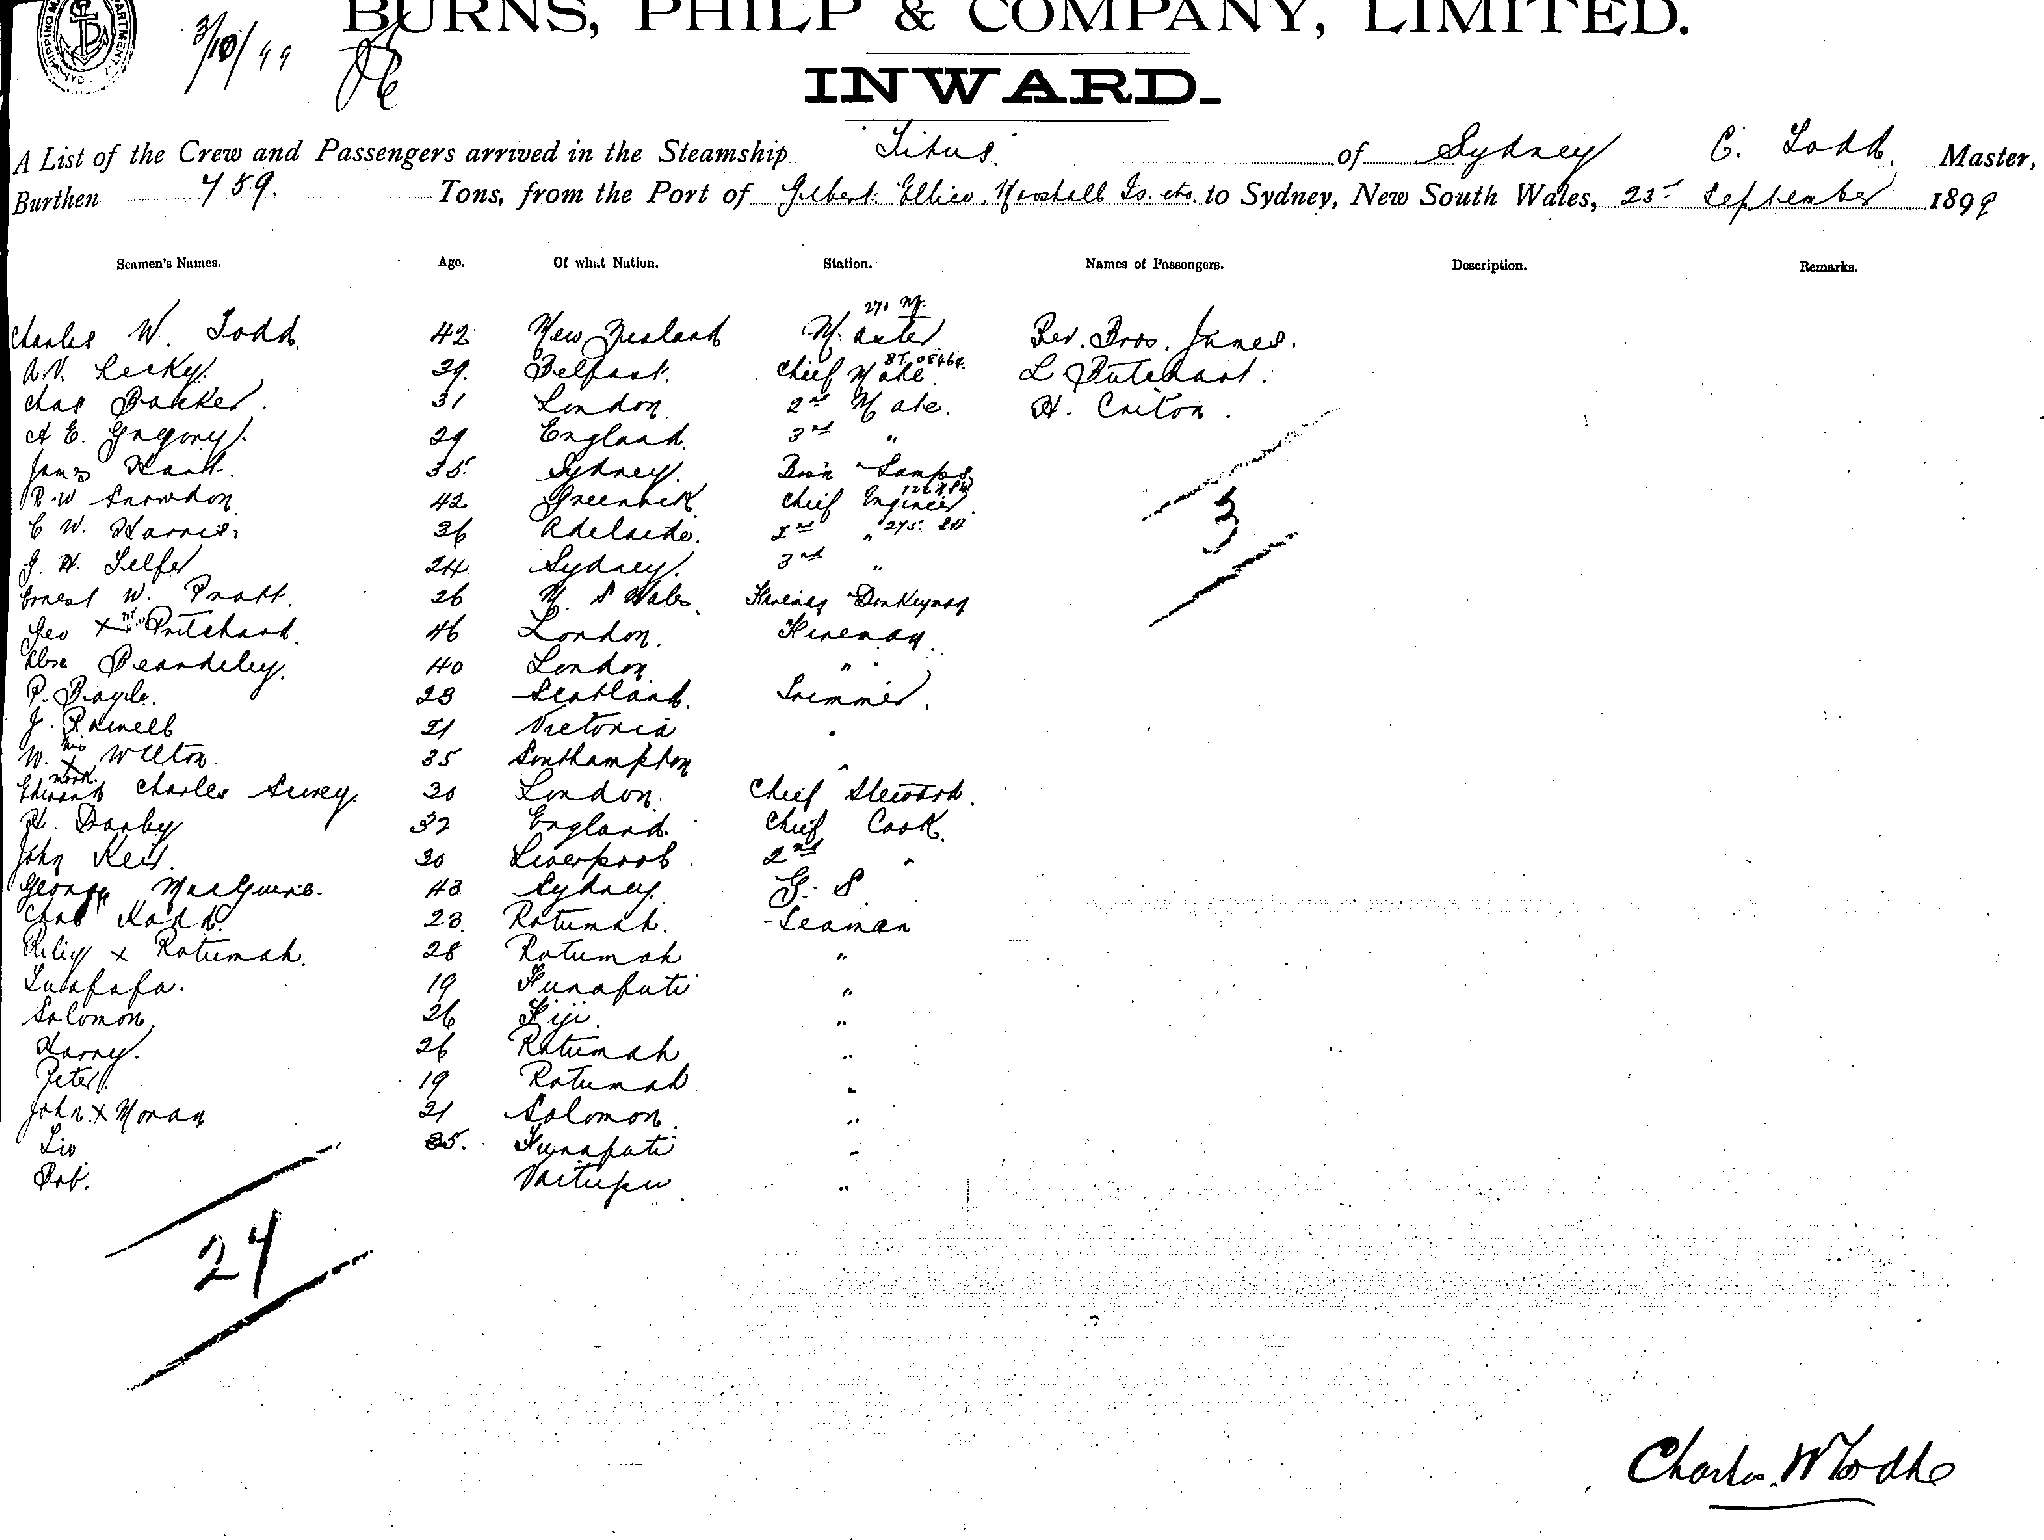 BURNS, PHILP & COMPANY, LIMITED.
3/10/99
INWARD.
A List of the Crew and Passengers arrived in the Steamship Titus of Sydney C. Todd Master,
Burthen 759. Tons, from the Port of Gilbert. Ellice. Marshall Is. etc. to Sydney, New South Wales, 23rd September 1899
Seamen's Names. Age. Of what Nation. Station. Names of Passengers. Description. Remarks.
Charles W. Todd 42 New Zealand Master Rev. Bros. James.
Lecky 29. Belfast. Chief Mate L
Chas Barker. 31 London 2nd Mate. H.
A E. Gregory. 29 England. 3rd "
James 35. Sydney. Lamps
R W Snowdon 42 Greenwich Chief Engineer
C W. Harris. 36 Adelaide. 2nd "
J. H. Telfer 24 Sydney. 3rd "
Ernest W. Pratt. 26 N. S Wales. Donkeyman
Geo x Pritchard. 46 London. Fireman.
Beardsley. 40 London. "
P. Boyle. 23 Scotland. Trimmer.
J. 21 Victoria "
W. his x mark Wilton 35 Southampton "
Edward Charles 30 London. Chief Steward.
H. Darby 32 England. Chief Cook.
John 30 Liverpool 2nd "
George MacGuire. 43 Sydney. G. S
Chas 23. Rotumah. Seaman
x Rotumah. 28 Rotumah "
19 Funafuti "
Solomon 26 Fiji. "
Harry. 26 Rotumah "
Peter. 19 Rotumah "
John x Moran 21 Solomon "
35. Funafuti "
Bob. Vaitupu "
3
24
Charles. W Todd